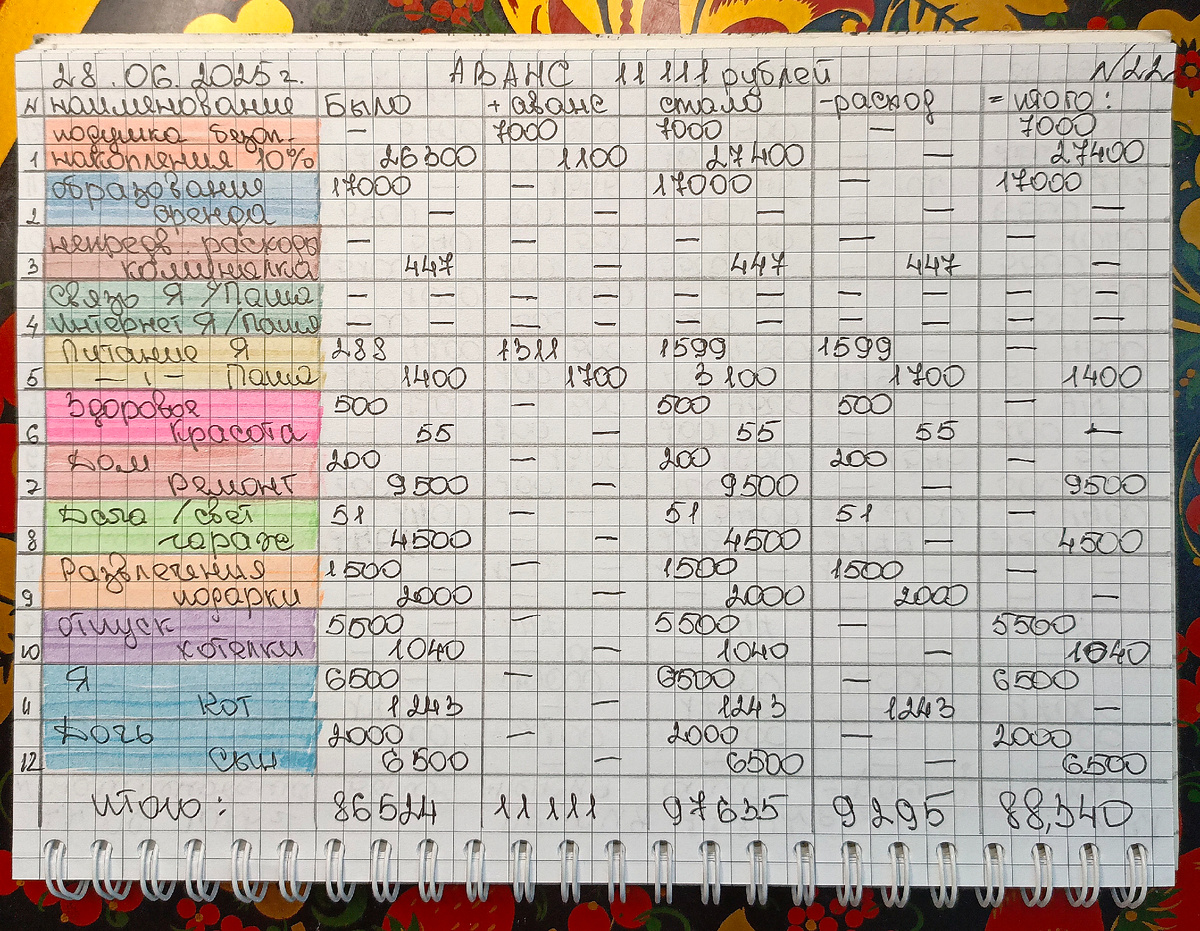 28.06.2025г. АВАНС 11 111 рублей N22
N наименование Было + аванс стало -расход = итого:
подушка безоп. — 7000 7000 — 7000
1 накопления 10% 26300 1100 27400 — 27400
образование 17000 — 17000 — 17000
2 аренда — — — — —
непредв. расходы — — — — —
3 коммуналка 447 — 447 447 —
связь Я /Паша — — — — — — — — — —
4 интернет Я/Паша — — — — — — — — — —
Питание Я 288 1311 1599 1599 —
5 — ı — Паша 1400 1700 3100 1700 1400
Здоровье 500 — 500 500 —
6 Красота 55 — 55 55 —
Дом 200 — 200 200 —
7 Ремонт 9500 — 9500 — 9500
Дача /свет 51 — 51 51 —
8 гараж 4500 — 4500 — 4500
Развлечения 1500 — 1500 1500 —
9 подарки 2000 — 2000 2000 —
отпуск 5500 — 5500 — 5500
10 хотелки 1040 — 1040 — 1040
Я 6500 — 6500 — 6500
11 Кот 1243 — 1243 1243 —
Дочь 2000 — 2000 — 2000
12 Сын 6500 — 6500 — 6500
Итого: 86524 11 111 97635 9295 88,340